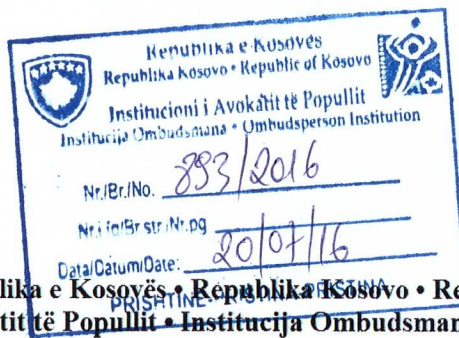 Republika e Kosovës
Republika Kosovo • Republic of Kosovo
Institucioni i Avokatit të Popullit
Institucija Ombudsmana • Ombudsperson Institution
Nr./Br./No. 893/2016
Nr.i fq/Br str./Nr.pg
Data/Datum/Date: 20/07/16
PRISHTINË-PRIŠTINA-PRISTINA
lika e Kosovës • Republika Kosovo • Re
tit të Popullit • Institucija Ombudsman